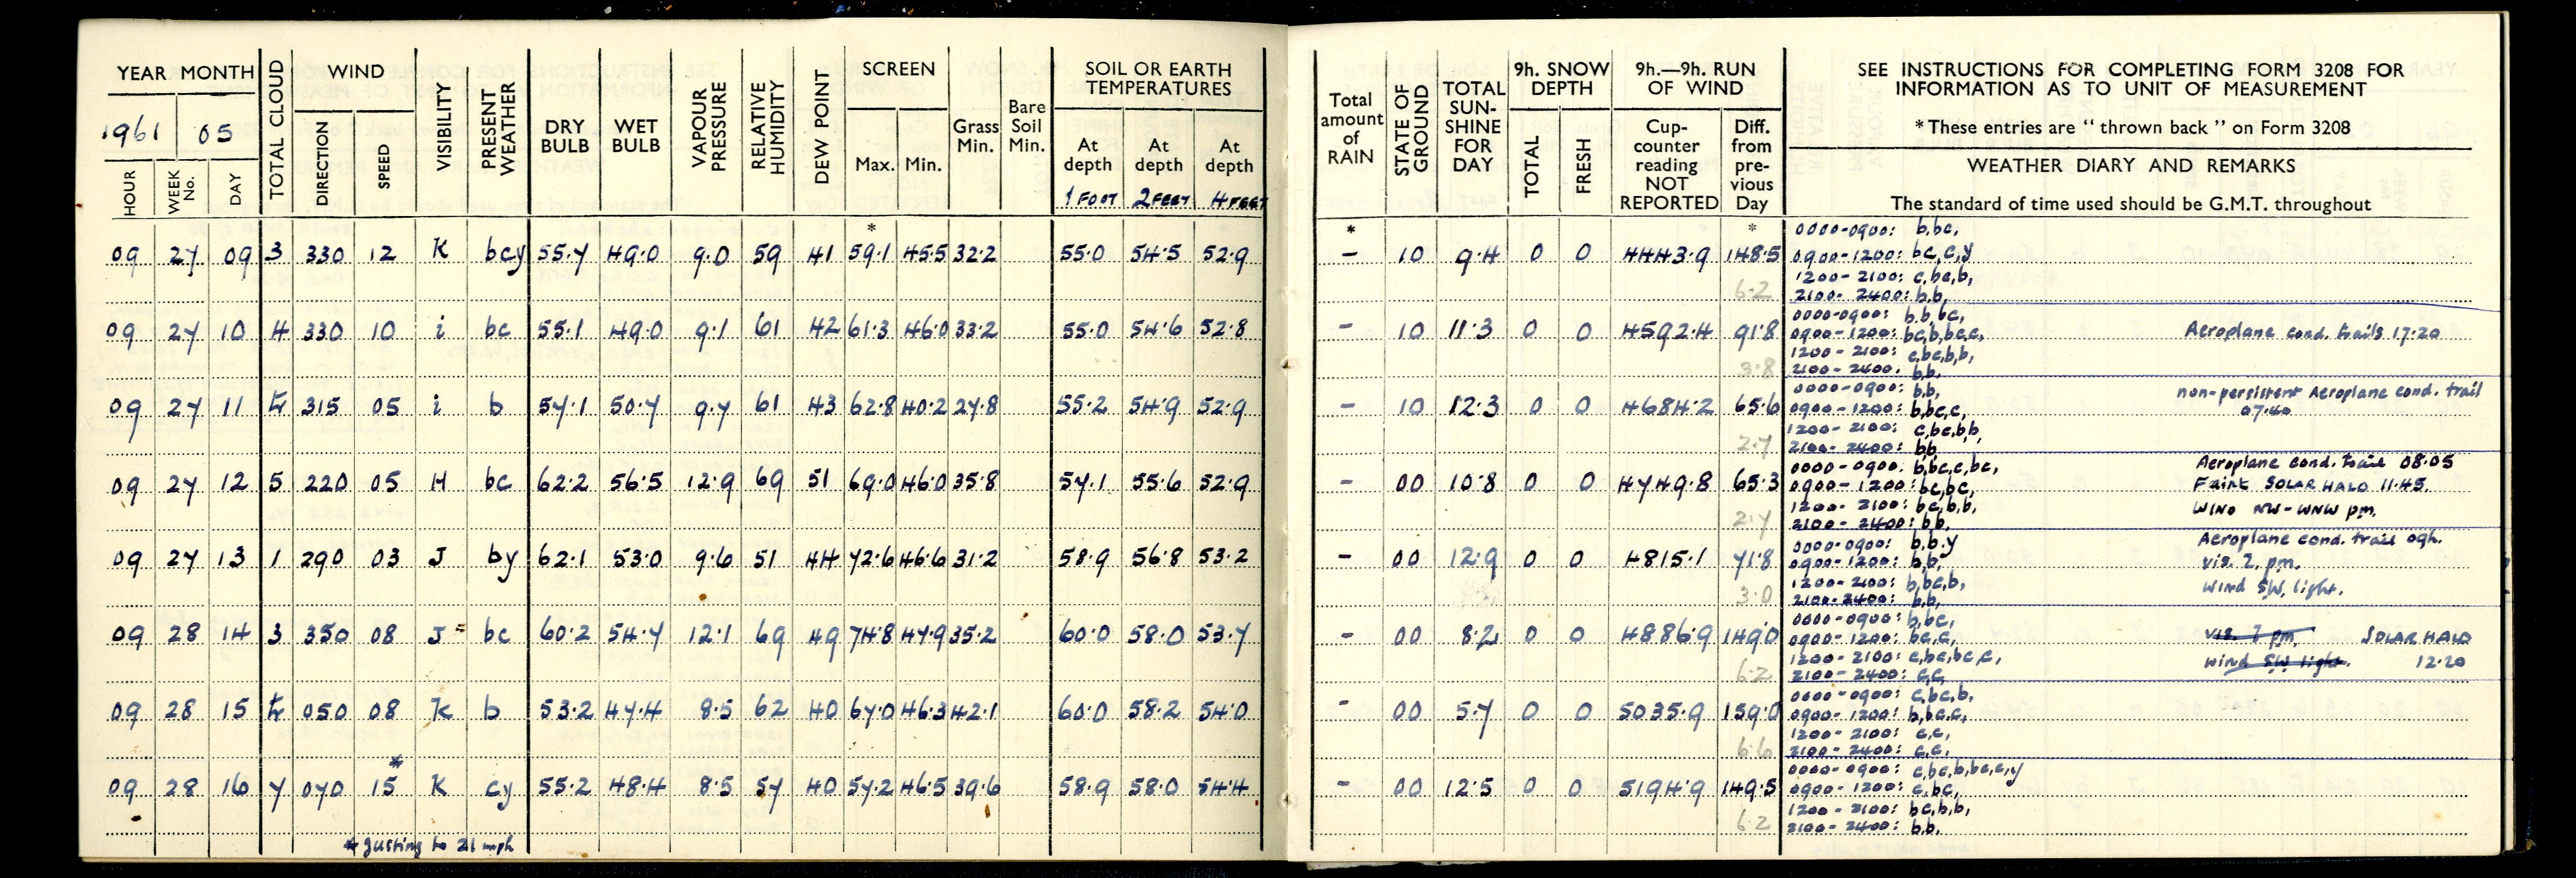 YEAR MONTH TOTAL CLOUD WIND VISIBILITY PRESENT WEATHER DRY BULB WET BULB VAPOUR PRESSURE RELATIVE HUMIDITY DEW POINT SCREEN Grass Min. Bare Soil Min. SOIL OR EARTH TEMPERATURES
1961 05 DIRECTION SPEED Max. Min. At depth At depth At depth
HOUR WEEK No. DAY 1 FOOT 2 FEET 4 FEET
*
09 27 09 3 330 12 K bcy 55.7 49.0 9.0 59 41 59.1 45.5 32.2 55.0 54.5 52.9
09 27 10 4 330 10 i bc 55.1 49.0 9.1 61 42 61.3 46.0 33.2 55.0 54.6 52.8
09 27 11 tr 315 05 i b 57.1 50.7 9.7 61 43 62.8 40.2 27.8 55.2 54.9 52.9
09 27 12 5 220 05 H bc 62.2 56.5 12.9 69 51 69.0 46.0 35.8 57.1 55.6 52.9
09 27 13 1 290 03 J by 62.1 53.0 9.6 51 44 72.6 46.6 31.2 58.9 56.8 53.2
09 28 14 3 350 08 J bc 60.2 54.7 12.1 69 49 74.8 47.9 35.2 60.0 58.0 53.7
09 28 15 tr 050 08 K b 53.2 47.4 8.5 62 40 67.0 46.3 42.1 60.0 58.2 54.0
*
09 28 16 7 070 15 K cy 55.2 48.4 8.5 57 40 57.2 46.5 39.6 58.9 58.0 54.4
* gusting to 21 mph
Total amount of RAIN STATE OF GROUND TOTAL SUN-SHINE FOR DAY 9h. SNOW DEPTH 9h.—9h. RUN OF WIND SEE INSTRUCTIONS FOR COMPLETING FORM 3208 FOR
INFORMATION AS TO UNIT OF MEASUREMENT
TOTAL FRESH Cup-counter reading NOT REPORTED Diff. from pre-vious Day * These entries are "thrown back" on Form 3208
WEATHER DIARY AND REMARKS
The standard of time used should be G.M.T. throughout
* * 0000-0900: b,bc,
- 10 9.4 0 0 4443.9 148.5 0900-1200: bc,c,y
1200-2100: c,bc,b,
6.2 2100-2400: b,b,
0000-0900: b,b,bc,
- 10 11.3 0 0 4592.4 91.8 0900-1200: bc,b,bc,c, Aeroplane cond. trails 17.20
1200-2100: c,bc,b,b,
3.8 2100-2400. b,b,
0000-0900: b,b, non-persistent Aeroplane cond. trail
- 10 12.3 0 0 4684.2 65.6 0900-1200: b,bc,c, 07.40
1200-2100: c,bc,b,b,
2.7 2100-2400: b,b,
0000-0900: b,bc,c,bc, Aeroplane cond. trail 08.05
- 00 10.8 0 0 4749.8 65.3 0900-1200: bc,bc, Faint SOLAR HALO 11.45.
1200-2100: bc,b,b, WIND NW-WNW pm.
2.7 2100-2400: b,b,
0000-0900: b,b,y Aeroplane cond. trail 09h.
- 00 12.9 0 0 4815.1 71.8 0900-1200: b,b, vis. I, pm.
1200-2100: b,bc,b, wind SW, light.
3.0 2100-2400: b,b,
0000-0900: b,bc,
- 00 8.2 0 0 4886.9 149.0 0900-1200: bc,c, vis. I pm. SOLAR HALO
1200-2100: c,bc,bc,c, wind SW light. 12.20
6.2 2100-2400: c,c,
0000-0900: c,bc,b,
- 00 5.7 0 0 5035.9 159.0 0900-1200: b,bc,c,
1200-2100: c,c,
6.6 2100-2400: c,c,
0000-0900: c,bc,b,bc,c,y
- 00 12.5 0 0 5194.9 149.5 0900-1200: c,bc,
1200-2100: bc,b,b,
6.2 2100-2400: b,b,